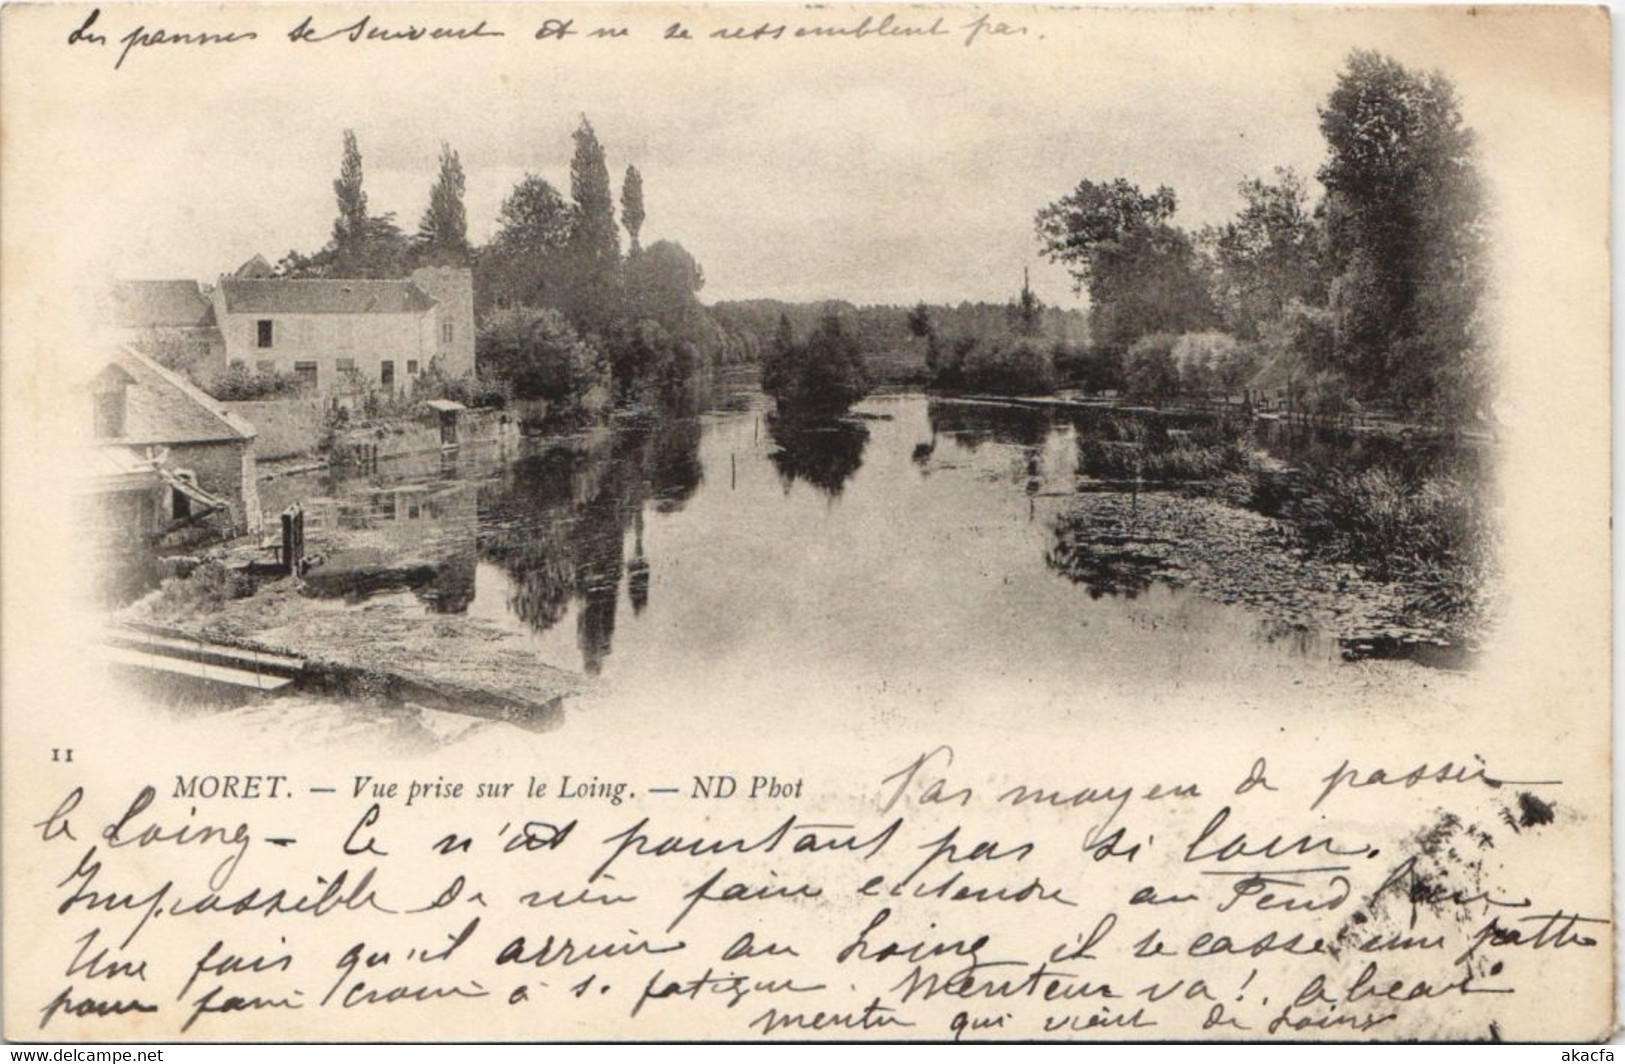 Les pannes se suivent et ne se ressemblent pas.
11
MORET. — Vue prise sur le Loing. — ND Phot
Pas moyen de passer
le Loing - Ce n'est pourtant pas si loin.
Impossible de rien faire entendre au
Une fois qu'il arrive au Loing il se casse une patte
pour faire croire à sa fatigue. Menteur va! a beau
mentir qui vient de Loing
akacfa
akacfa-delcampe.net